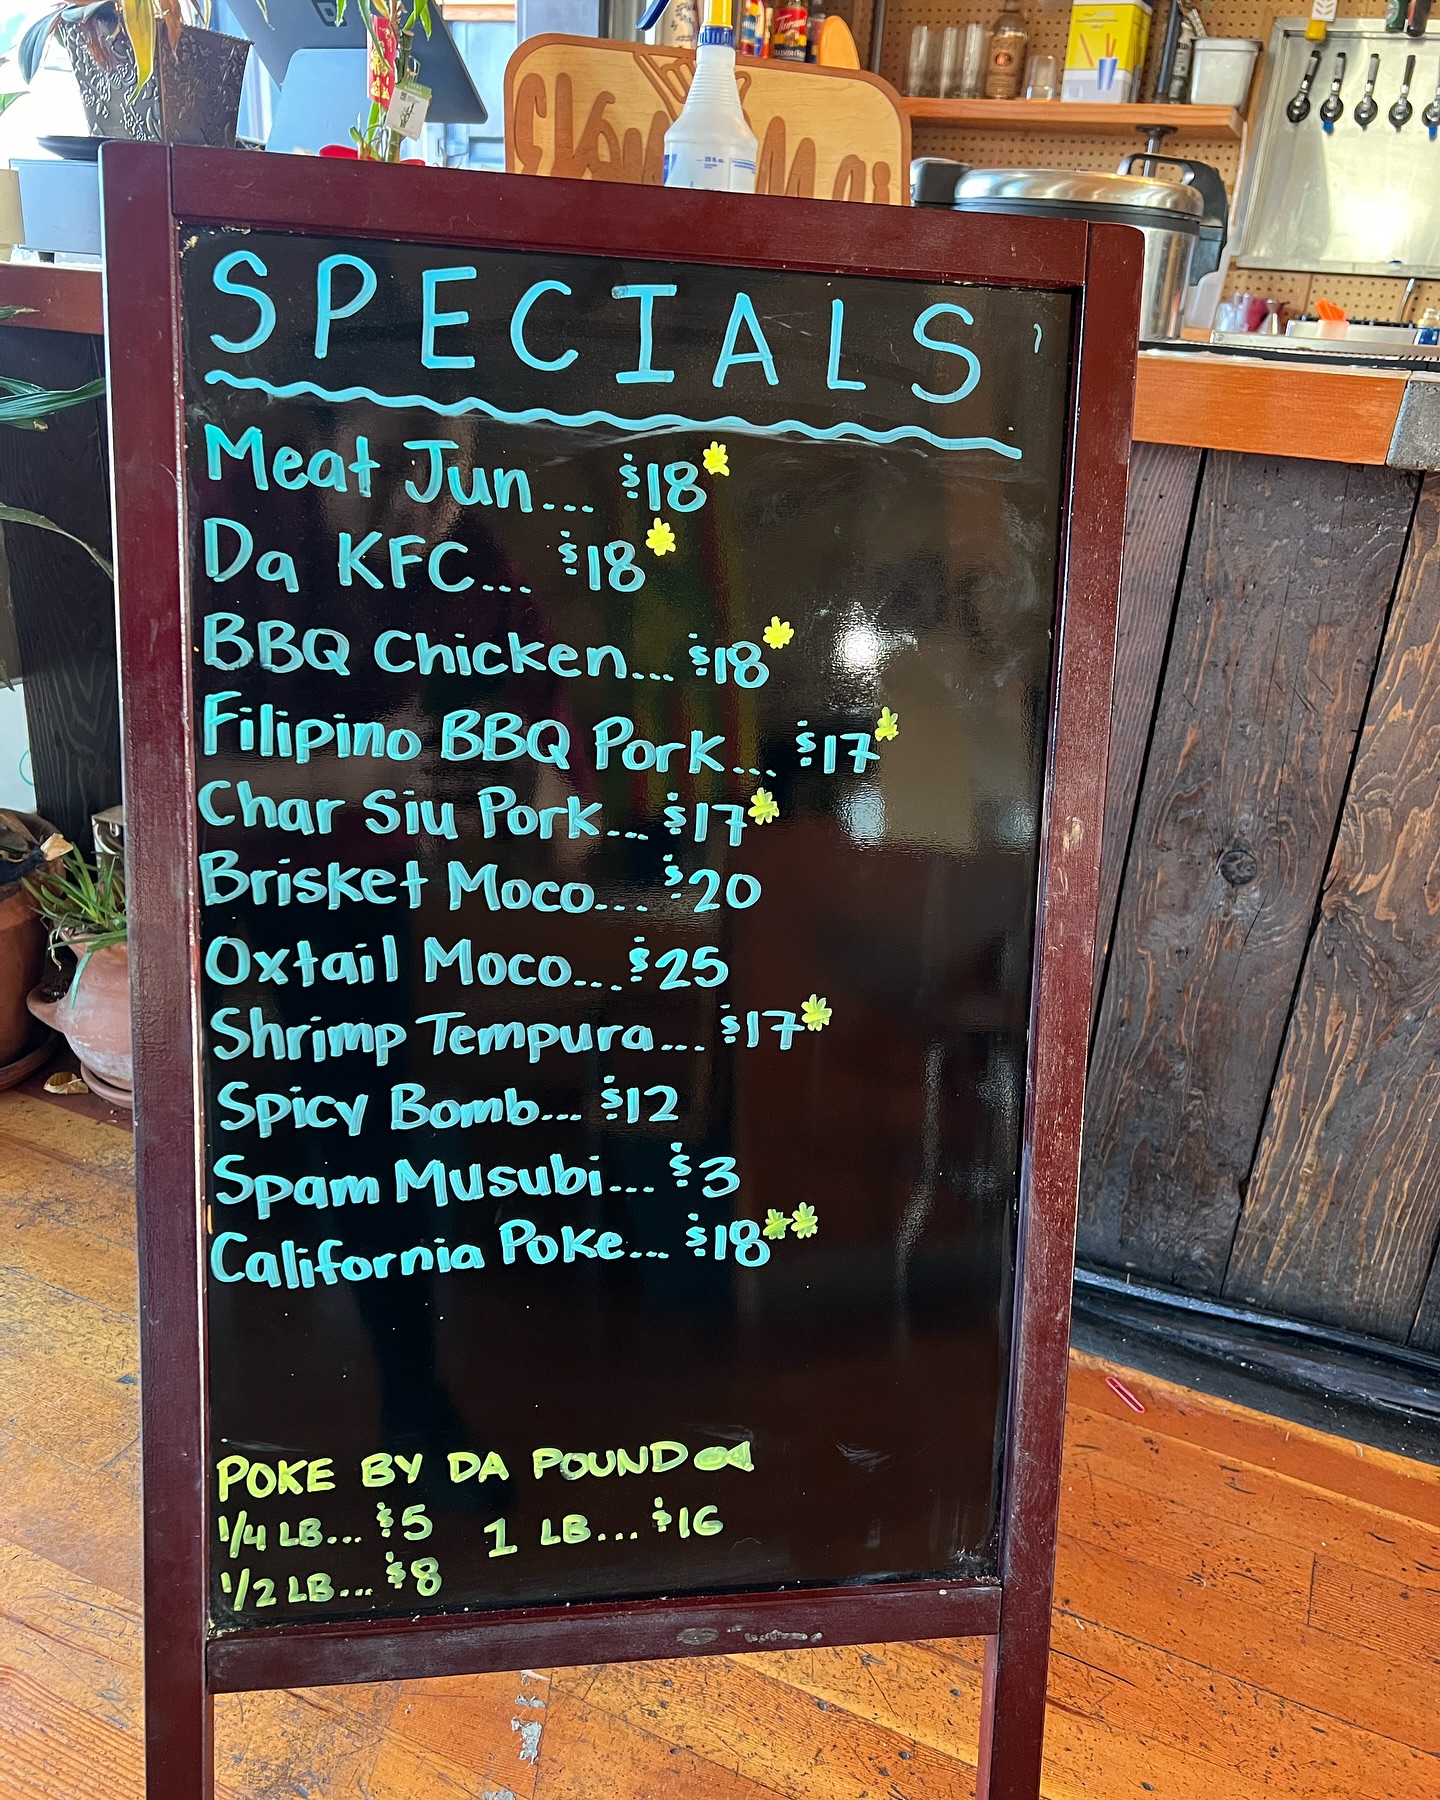 SPECIALS
Meat Jun... $18*
Da KFC... $18*
BBQ Chicken... $18*
Filipino BBQ Pork... $17*
Char Siu Pork... $17*
Brisket Moco... $20
Oxtail Moco... $25
Shrimp Tempura... $17*
Spicy Bomb... $12
Spam Musubi... $3
California Poke... $18**
POKE BY DA POUND
1/4 LB... $5 1 LB... $16
1/2 LB... $8